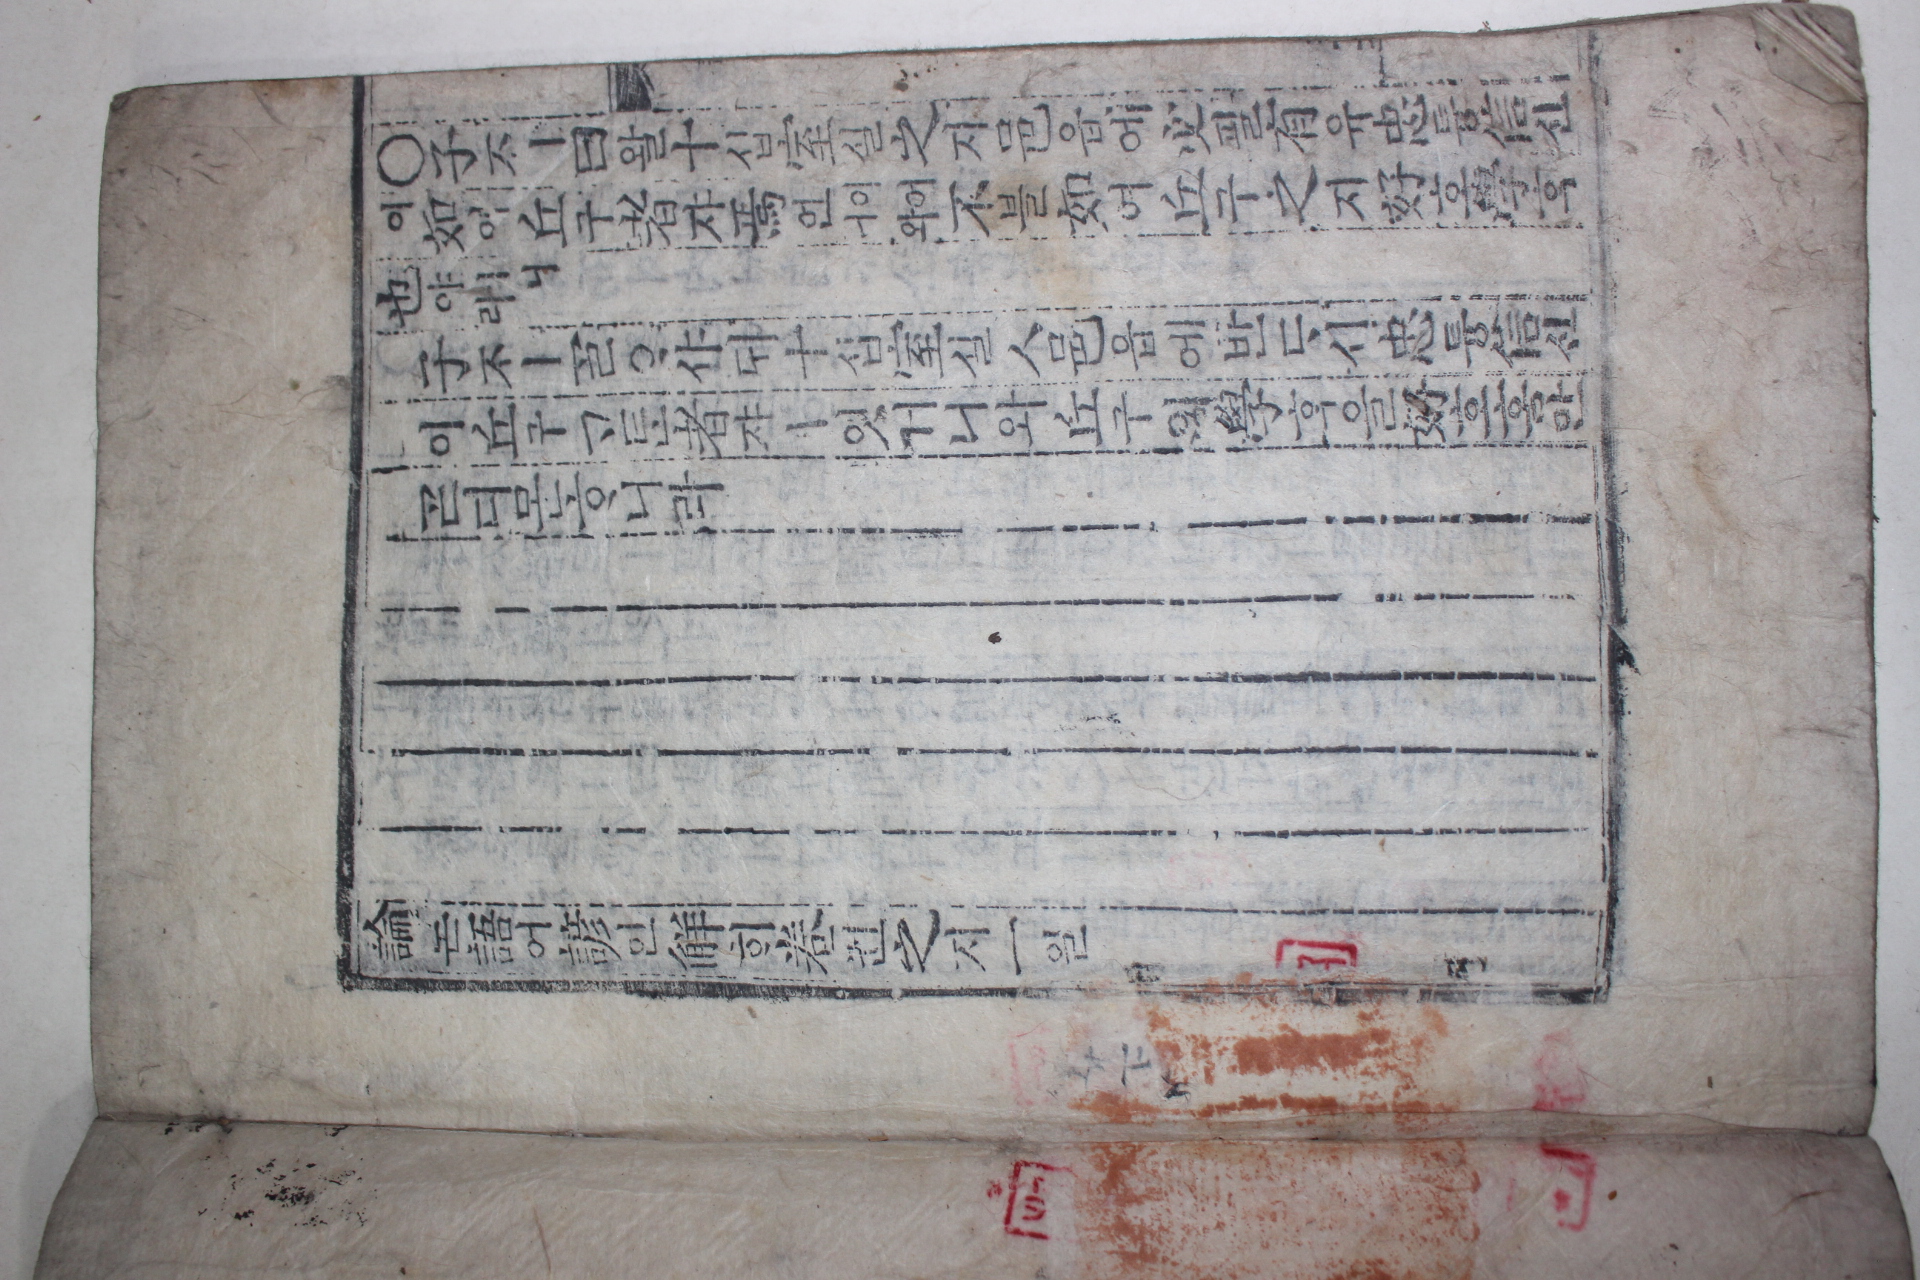 ○子ᄌᆞㅣ曰왈十십室실之지邑읍에必필有유忠튱信신
이如여丘구者쟈焉언이어니와不블如여丘구之지好호學ᄒᆞᆨ
也야ㅣ니라
子ᄌᆞㅣᄀᆞᆯᄋᆞ샤ᄃᆡ十십室실ㅅ邑읍에반ᄃᆞ시忠튱信신
이丘구ᄀᆞᄐᆞᆫ者쟈ㅣ잇거니와丘구의學ᄒᆞᆨ을好호홈만
ᄀᆞᆮ디몯ᄒᆞ니라
論논語어諺언解ᄒᆡ卷권之지一일